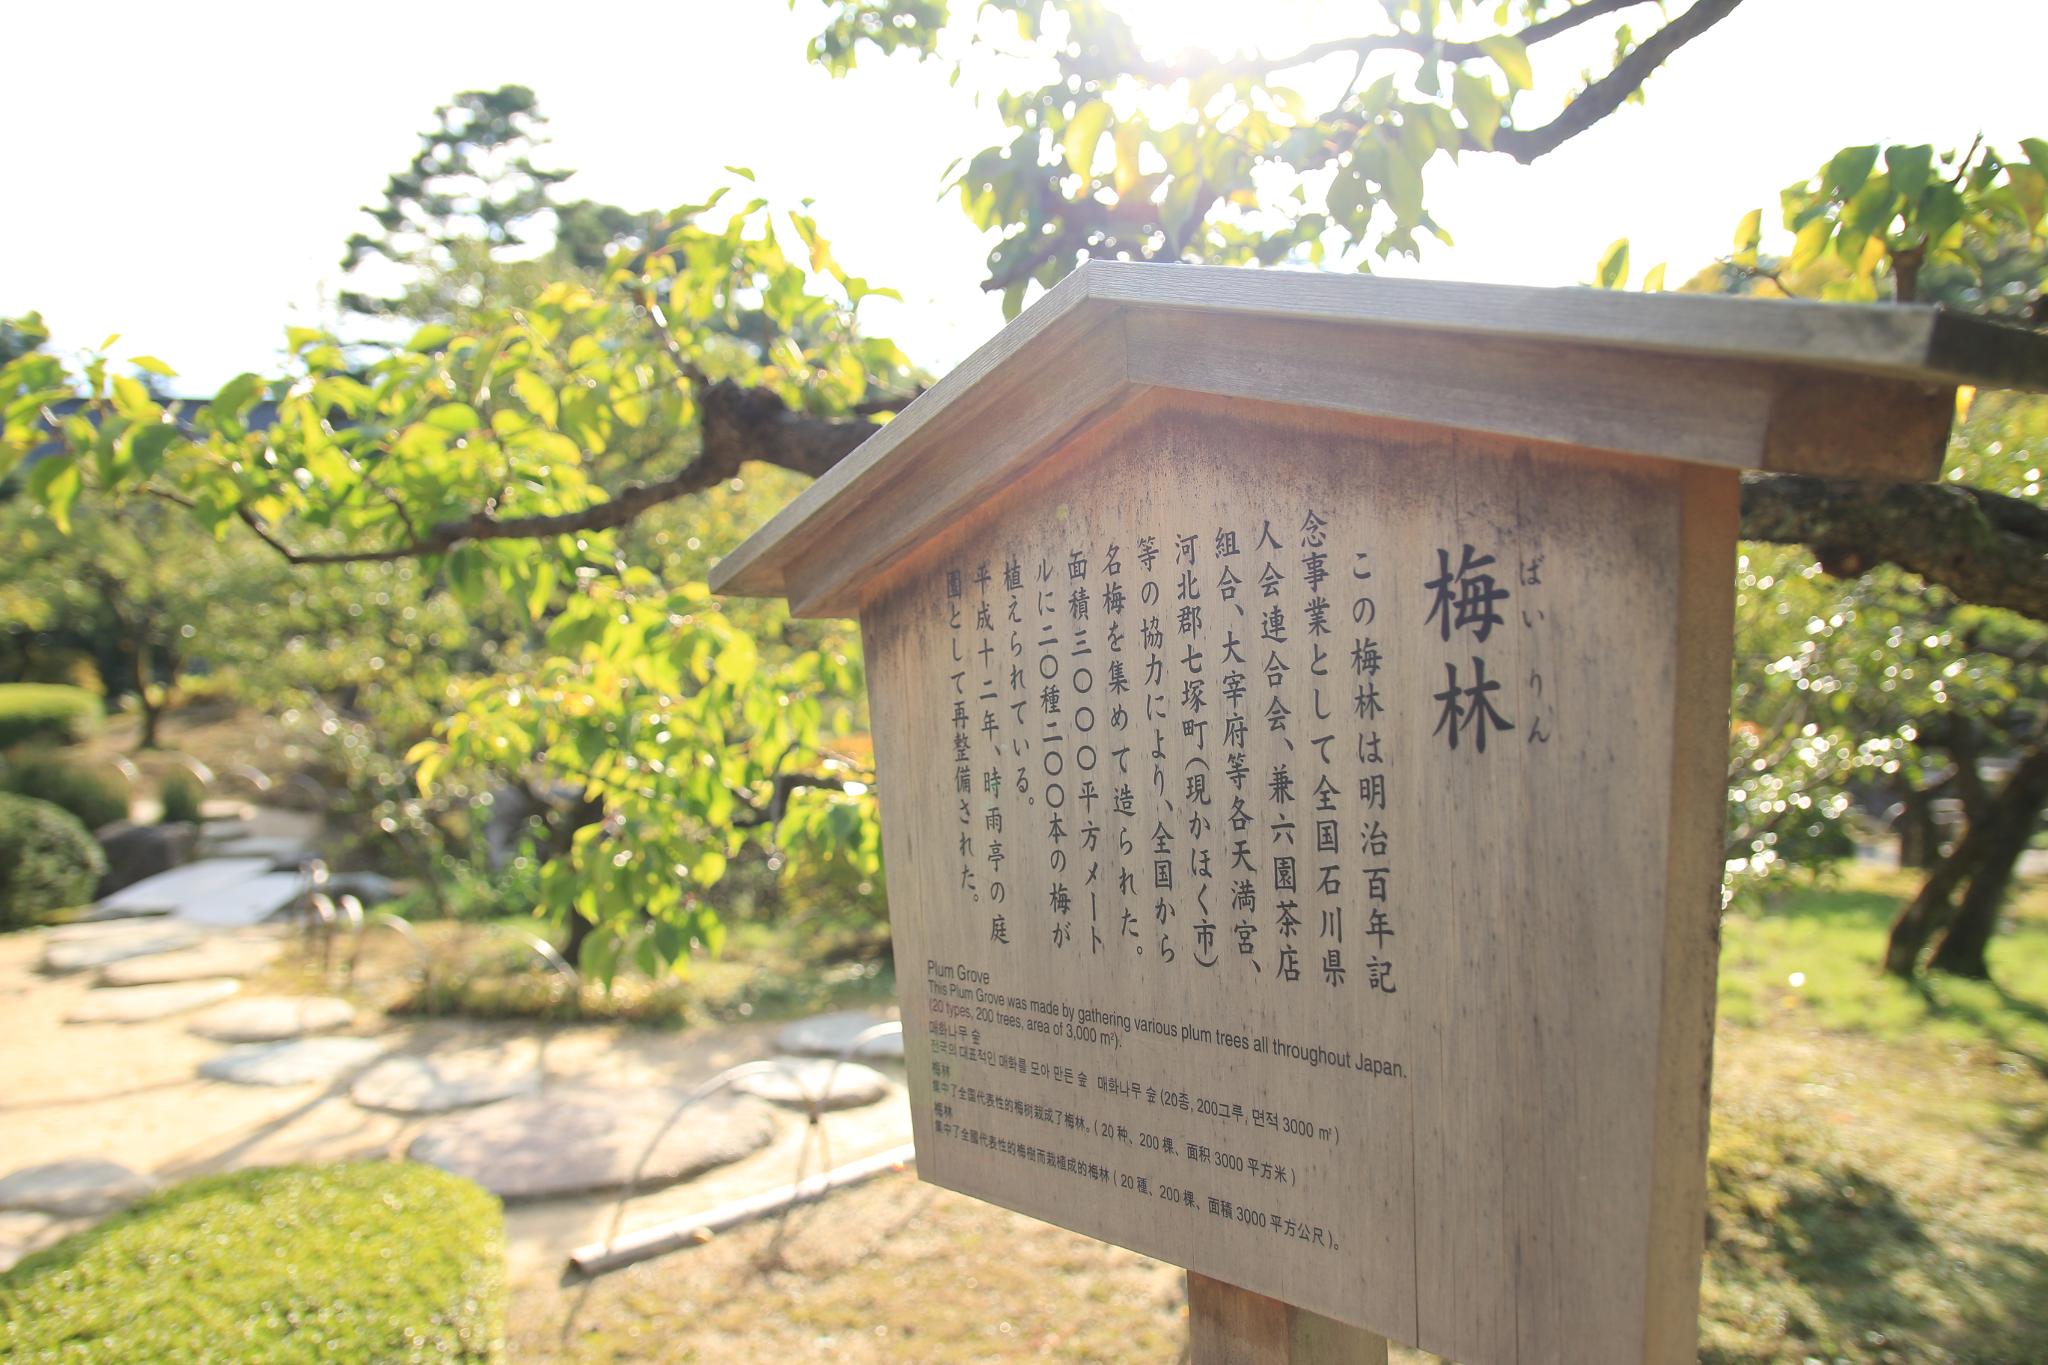 梅林
ばいりん
この梅林は明治百年記
念事業として全国石川県
人会連合会、兼六園茶店
組合、大宰府等各天満宮、
河北郡七塚町(現かほく市)
等の協力により、全国から
名梅を集めて造られた。
面積三〇〇〇平方メート
ルに二〇種二〇〇本の梅が
植えられている。
平成十二年、時雨亭の庭
園として再整備された。
Plum Grove
This Plum Grove was made by gathering various plum trees all throughout Japan.
(20 types, 200 trees, area of 3,000 m²).
매화나무 숲
전국의 대표적인 매화를 모아 만든 숲 매화나무 숲 (20종, 200그루, 면적 3000 ㎡)
梅林
集中了全国代表性的梅树栽成了梅林。( 20 种、200 棵、面积 3000 平方米 )
梅林
集中了全國代表性的梅樹而栽植成的梅林 ( 20 種、200 棵、面積 3000 平方公尺 )。